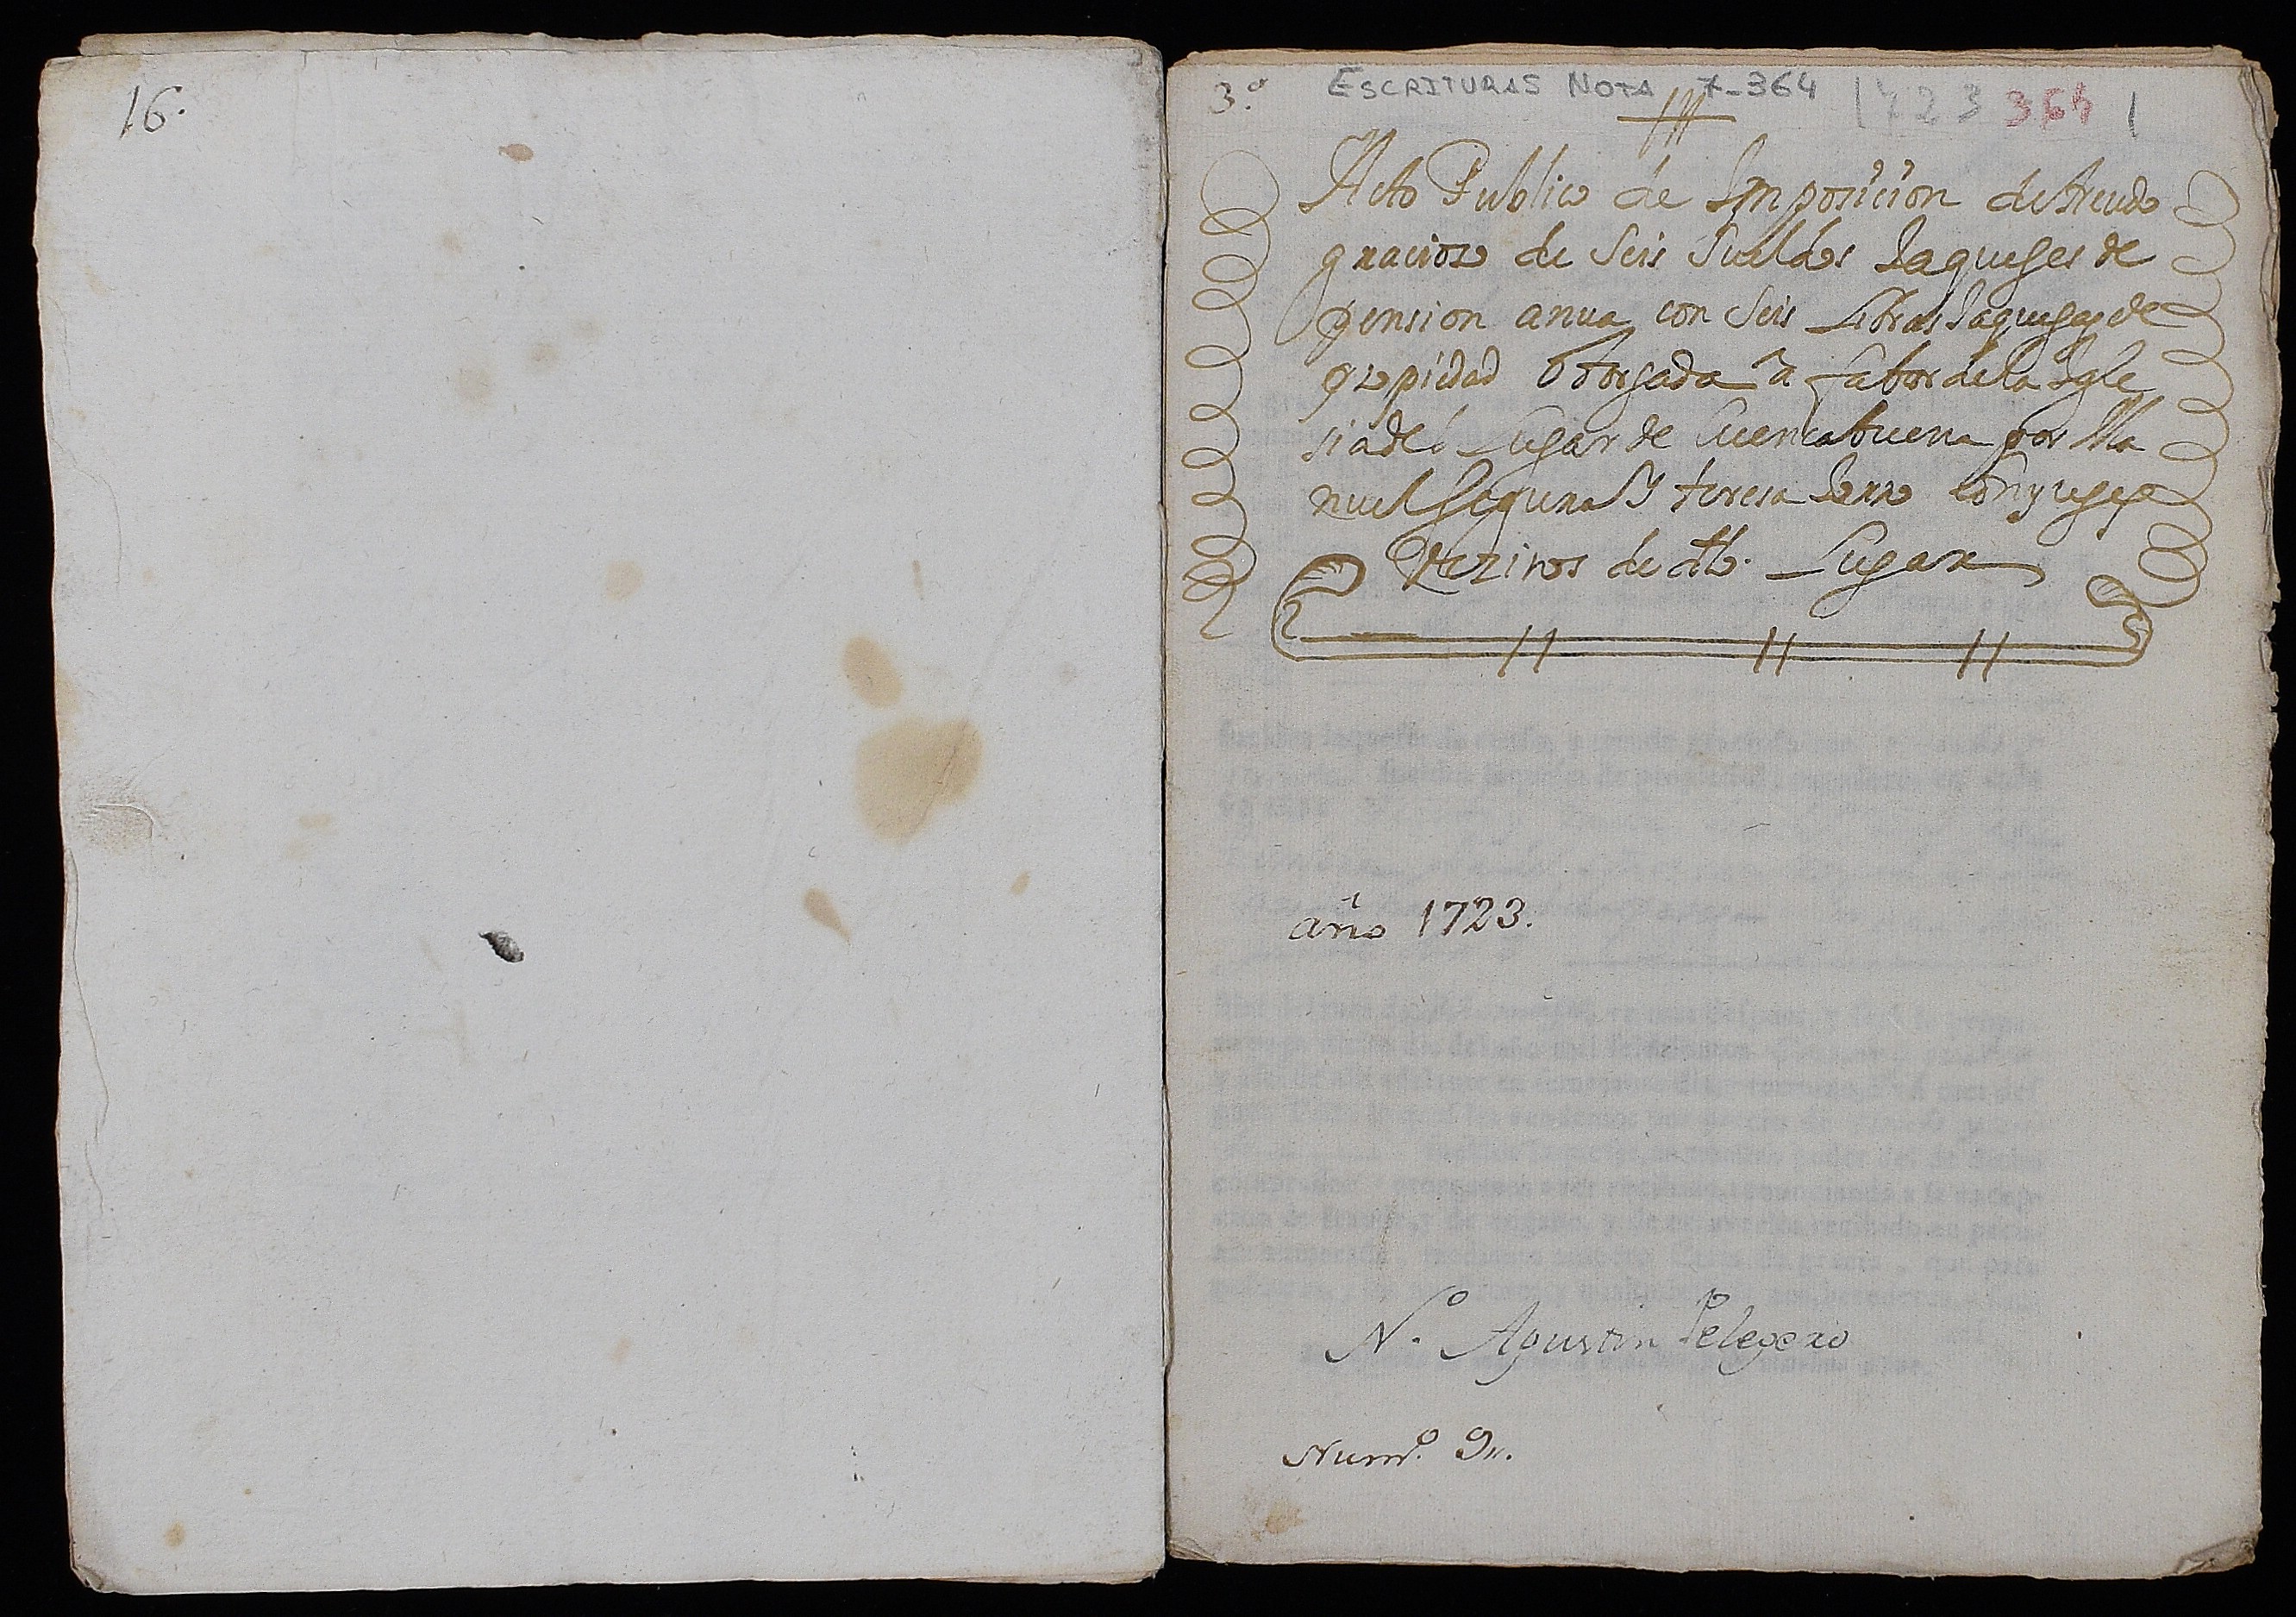 16.
3.º ESCRITURAS NOTA 7-364 1723 364 1
Acto Publico de Imposicion de treudo
gracioso de Seis Sueldos Jaqueses de
pension anua con Seis Libras Jaquesas de
propiedad Otorgada a fabor de la Igle
sia del Lugar de Cuencabuena por Ma
nuel Segura Y teresa Serr Conyuges
Vezinos de dho. Lugar
año 1723.
Nº. Agustin Pelegero
Numº. 9..